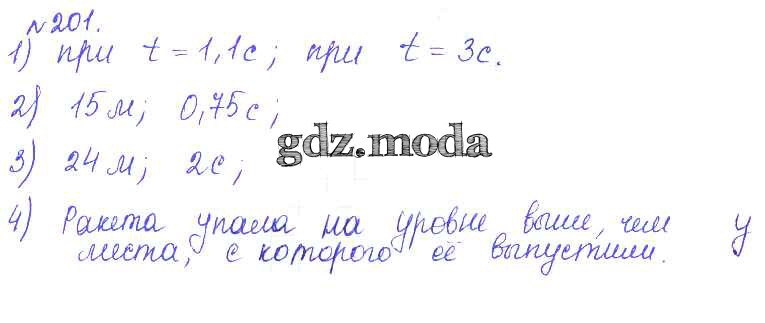 №201.
1) при t = 1,1с; при t = 3с.
2) 15м; 0,75с;
gdz.moda
3) 24м; 2с;
4) Ракета упала на уровне выше, чем у
места, с которого её выпустили.